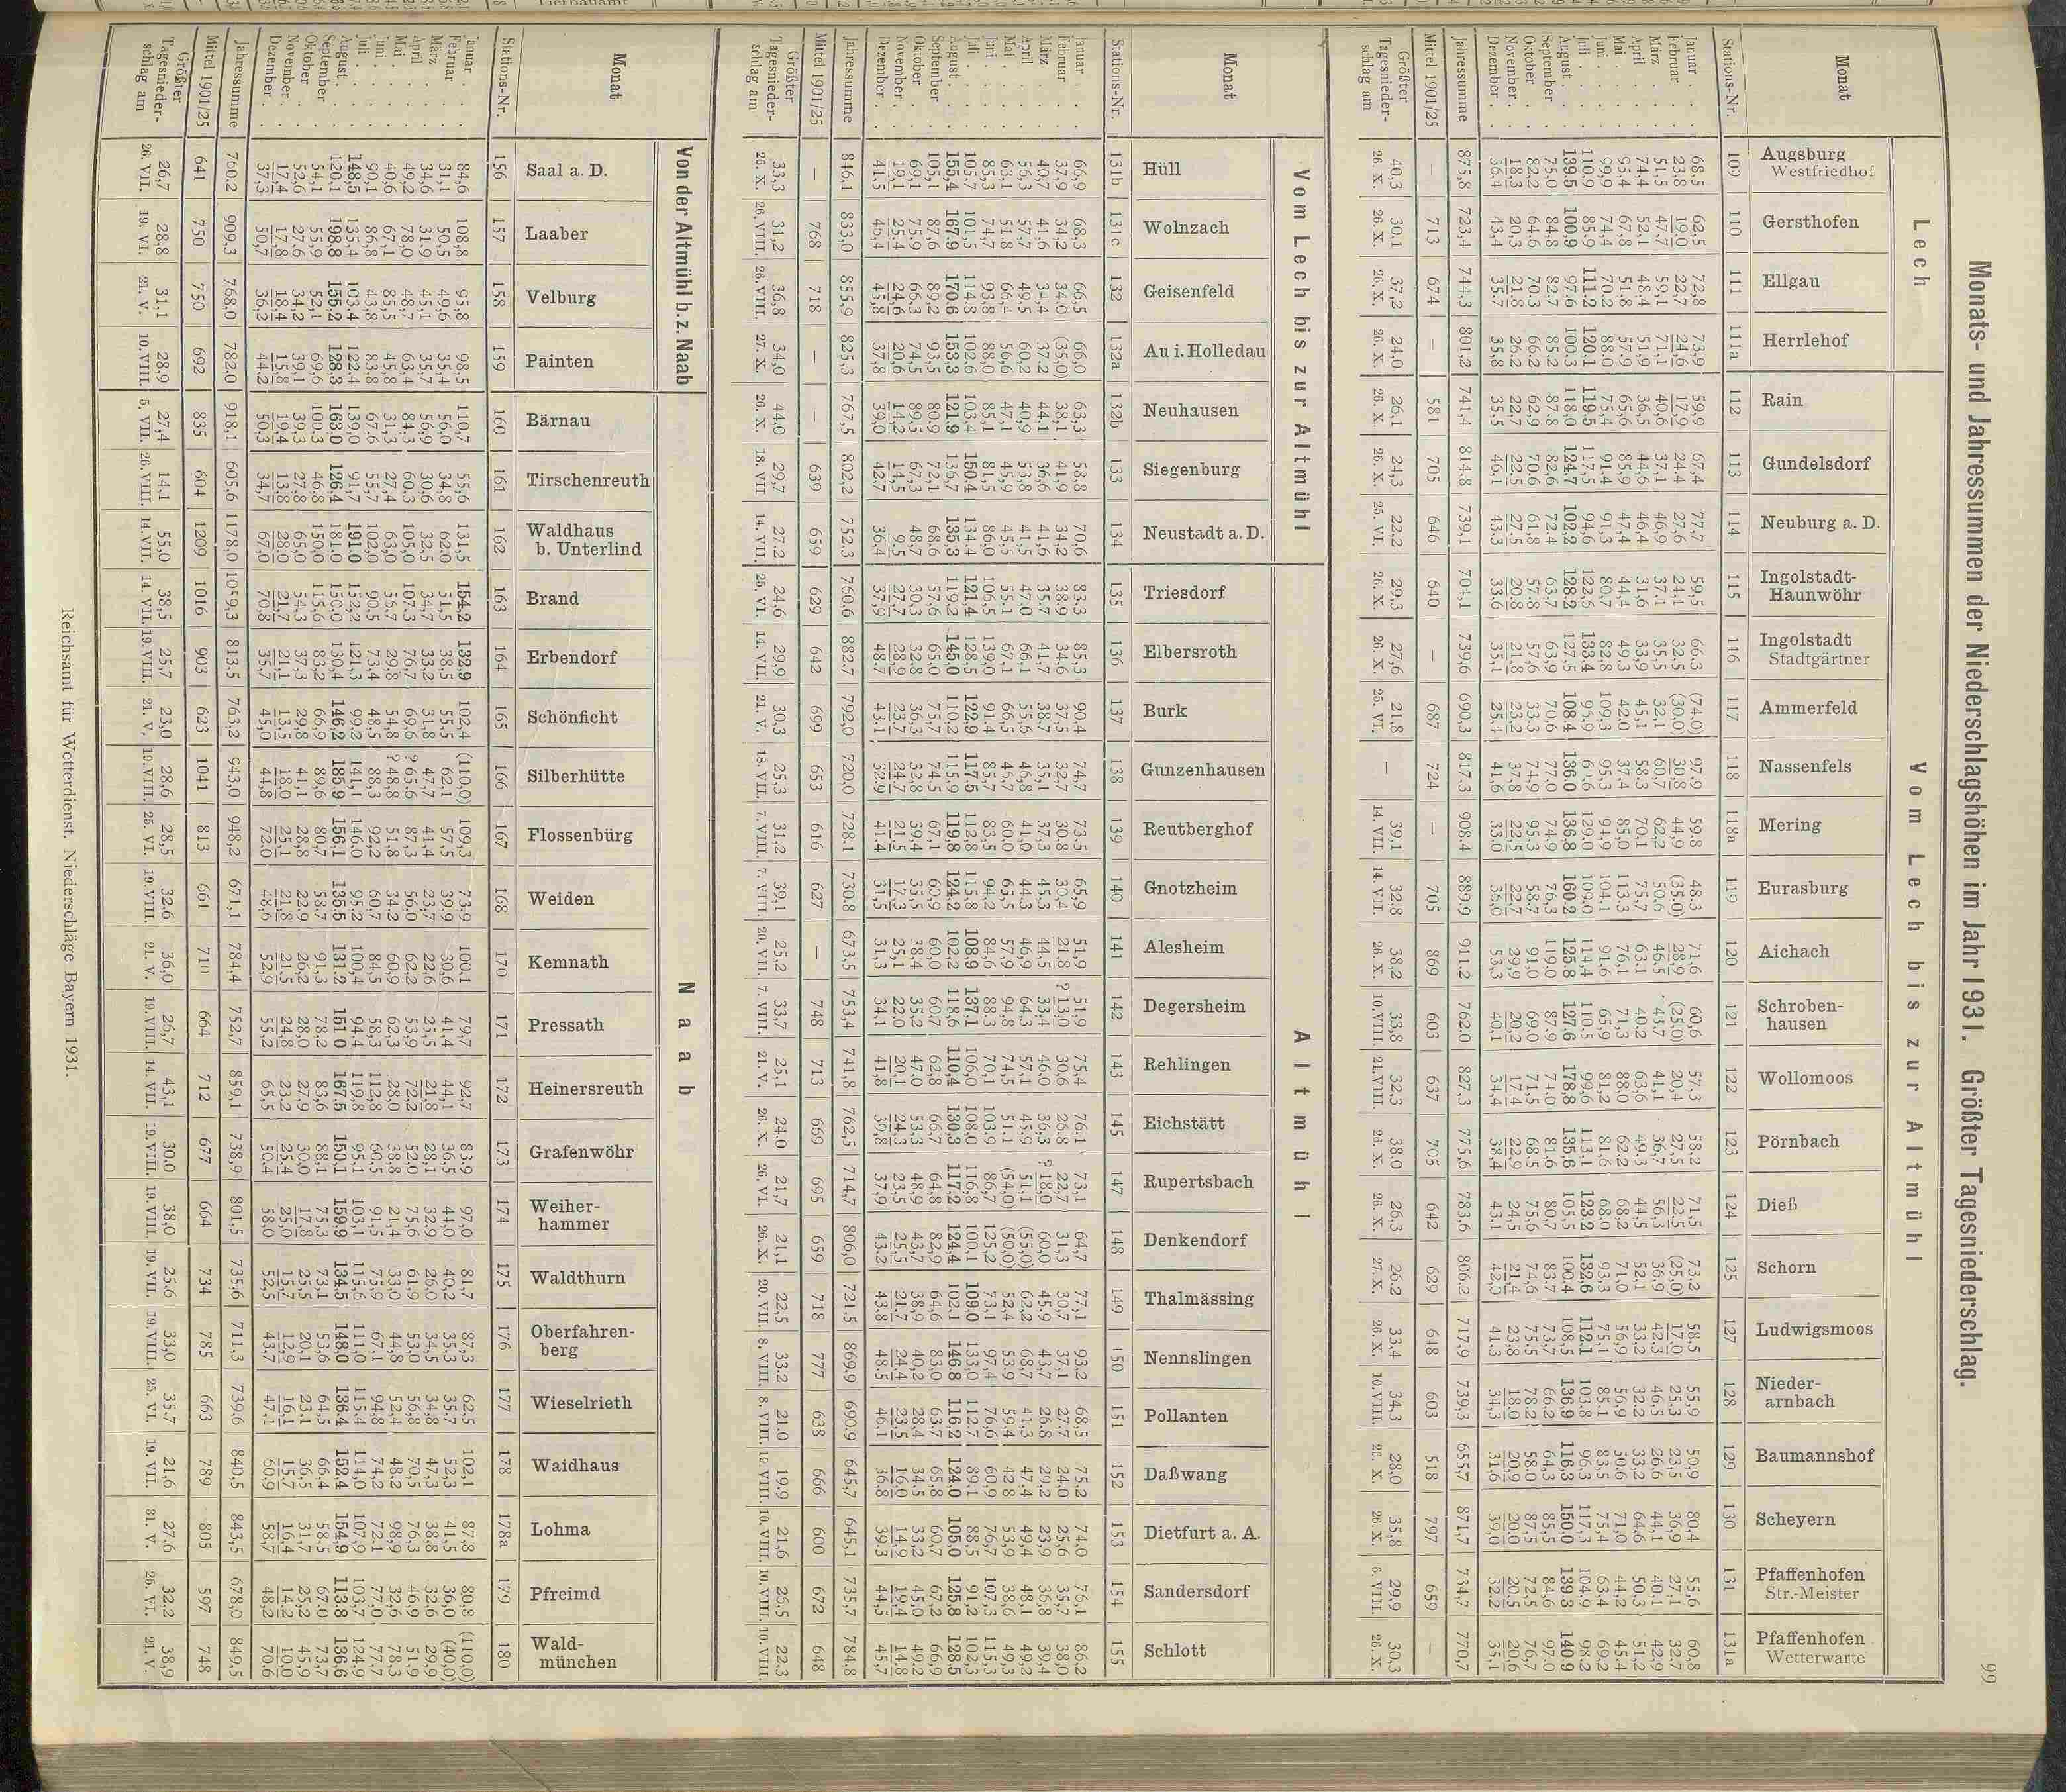 99
Monats- und Jahressummen der Niederschlagshöhen im Jahr 1931. Größter Tagesniederschlag.
Lech Vom Lech bis zur Altmühl
Monat Augsburg Westfriedhof Gersthofen Ellgau Herrlehof Rain Gundelsdorf Neuburg a. D. Ingolstadt-Haunwöhr Ingolstadt Stadtgärtner Ammerfeld Nassenfels Mering Eurasburg Aichach Schroben-hausen Wollomoos Pörnbach Dieß Schorn Ludwigsmoos Nieder-arnbach Baumannshof Scheyern Pfaffenhofen Str.-Meister Pfaffenhofen Wetterwarte
Stations-Nr. 109 110 111 111a 112 113 114 115 116 117 118 118a 119 120 121 122 123 124 125 127 128 129 130 131 131a
Januar 68,5 62,5 72,8 73,9 59,9 67,4 77,7 59,5 66,3 (74,0) 97,9 59,8 48,3 71,6 60,6 57,3 58,2 71,5 73,2 58,5 55,9 50,9 80,4 55,6 60,8
Februar 23,8 19,0 22,7 24,6 17,9 24,4 27,6 24,1 32,5 (30,0) 30,8 44,9 (35,0) 28,9 (25,0) 20,4 27,5 22,5 (25,0) 17,0 25,3 23,5 36,9 27,1 32,7
März 51,5 47,7 59,1 71,1 40,6 37,1 46,9 37,1 35,5 32,1 60,7 62,2 50,6 46,5 43,7 41,1 36,7 56,3 36,9 42,3 46,5 26,6 44,1 40,1 42,9
April 74,4 52,1 48,4 51,9 36,5 44,6 46,4 31,6 33,9 45,1 58,3 70,1 75,7 63,1 40,2 63,6 49,3 44,5 52,1 33,2 32,2 33,2 64,6 50,3 51,2
Mai 95,4 67,8 51,8 57,9 65,6 85,9 47,4 44,4 49,3 42,0 37,4 85,0 113,3 76,1 71,3 88,0 62,2 68,2 71,0 56,9 56,9 50,6 71,0 44,2 45,4
Juni 99,9 74,4 70,2 88,0 75,4 91,4 91,3 80,7 82,8 109,3 95,3 94,9 104,1 91,6 65,9 81,2 81,6 68,0 93,3 75,1 85,1 83,5 75,4 63,4 69,2
Juli 110,9 85,9 111,2 120,1 119,5 117,5 94,6 122,6 133,4 95,9 129,0 109,0 114,4 110,5 99,6 113,1 123,2 132,6 112,1 103,8 96,3 117,3 104,9 98,2
August 139,5 100,9 97,6 100,3 118,0 124,7 102,2 128,2 127,5 108,4 136,0 136,8 160,2 125,8 127,6 178,8 135,6 105,5 100,4 108,5 136,9 116,3 150,0 139,3 140,9
September 75,0 84,8 82,7 85,2 87,8 82,6 72,4 63,7 63,9 70,6 77,0 74,9 76,3 119,0 87,9 74,0 81,6 80,7 83,7 73,7 66,2 64,3 85,5 84,6 97,0
Oktober 82,2 64,6 70,3 66,2 62,9 70,6 61,8 57,8 57,6 33,3 74,9 95,3 58,7 91,0 69,0 71,5 68,5 75,6 74,6 75,5 78,2 58,0 87,5 72,5 76,7
November 18,3 20,3 21,8 26,2 22,7 22,5 27,5 20,8 21,8 23,2 37,8 22,5 22,7 29,9 20,2 17,4 22,9 24,5 21,4 23,8 18,0 20,9 20,0 20,5 20,6
Dezember 36,4 43,4 35,7 35,8 35,5 46,1 43,3 33,6 35,1 25,4 41,6 33,0 36,0 53,3 40,1 34,4 38,4 43,1 42,0 41,3 34,3 31,6 39,0 32,2 35,1
Jahressumme 875,8 723,4 744,3 801,2 741,4 814,8 739,1 704,1 739,6 690,3 817,3 908,4 889,9 911,2 762,0 827,3 775,6 783,6 806,2 717,9 739,3 655,7 871,7 734,7 770,7
Mittel 1901/25 — 713 674 — 581 705 646 640 — 687 724 — 705 869 603 637 705 642 629 648 603 518 797 659 —
Größter Tagesnieder-schlag am 40,3 30,1 37,2 24,0 26,1 24,3 22,2 29,3 27,6 21,8 — 39,1 32,8 38,2 33,8 32,3 38,0 26,3 26,2 33,4 34,3 28,0 35,8 29,9 30,3
26. X. 26. X. 26. X. 26. X. 26. X. 26. X. 25. VI. 26. X. 26. X. 25. VI. 14. VII. 14. VII. 26. X. 10. VIII. 21. VIII. 26. X. 26. X. 27. X. 26. X. 10. VIII. 26. X. 26. X. 6. VIII. 26. X.
Vom Lech bis zur Altmühl Altmühl
Monat Hüll Wolnzach Geisenfeld Au i. Holledau Neuhausen Siegenburg Neustadt a. D. Triesdorf Elbersroth Burk Gunzenhausen Reutberghof Gnotzheim Alesheim Degersheim Rehlingen Eichstätt Rupertsbach Denkendorf Thalmässing Nennslingen Pollanten Daßwang Dietfurt a. A. Sandersdorf Schlott
Stations-Nr. 131b 131c 132 132a 132b 133 134 135 136 137 138 139 140 141 142 143 145 147 148 149 150 151 152 153 154 155
Januar 66,9 68,3 66,5 66,0 63,3 58,8 70,6 83,3 85,3 90,4 74,7 73,5 65,9 51,9 51,9 75,4 76,1 73,1 64,7 77,1 93,2 68,5 75,2 74,0 76,1 86,2
Februar 37,9 34,2 34,0 (35,0) 38,1 41,9 34,2 38,9 34,6 37,5 32,7 30,8 30,4 21,8 ? 13,0 30,6 26,8 22,7 31,3 30,7 37,1 27,7 24,0 25,6 35,7 38,0
März 40,7 41,6 34,4 37,2 44,1 36,6 41,6 35,7 41,7 38,7 35,1 37,3 45,3 44,5 33,4 46,0 36,3 ? 18,0 60,0 45,9 43,7 26,8 29,2 23,9 36,8 39,4
April 56,3 57,7 49,5 60,2 40,9 53,8 41,5 47,0 66,1 55,6 46,8 41,0 44,3 46,9 64,3 57,1 45,9 51,1 (55,0) 62,2 68,7 41,3 47,4 49,4 48,1 49,2
Mai 63,1 51,8 66,4 56,6 47,1 45,9 45,5 55,1 67,1 66,5 46,7 60,0 65,5 57,9 94,8 74,5 51,1 (54,0) (50,0) 52,4 53,9 59,4 42,8 53,9 38,6 49,3
Juni 85,3 74,7 93,8 88,0 85,1 81,5 86,0 106,5 139,0 91,4 85,7 83,5 94,2 84,6 88,3 70,1 103,9 86,7 125,2 73,1 97,4 76,6 60,9 76,7 107,3 115,3
Juli 105,7 101,5 114,8 102,6 103,4 150,4 134,4 121,4 128,5 122,9 117,5 112,8 115,8 108,9 137,1 106,0 108,0 116,8 100,1 109,0 133,0 112,7 89,1 88,5 91,2 102,3
August 155,4 187,9 170,6 153,3 121,9 136,7 135,3 119,2 145,0 110,2 115,9 119,8 124,2 102,2 118,6 110,4 130,3 117,2 124,4 102,1 146,8 116,2 124,0 105,0 125,8 128,5
September 105,1 87,6 89,2 93,5 80,9 72,1 68,6 57,6 65,0 75,7 74,5 67,1 60,9 60,0 60,7 62,8 66,7 64,8 82,9 64,6 83,0 63,7 65,8 60,7 67,2 66,9
Oktober 69,1 75,9 66,3 74,5 89,5 67,3 48,7 30,3 32,8 36,3 32,8 39,4 35,5 38,4 35,2 47,0 53,3 48,9 43,7 38,9 40,2 28,4 34,5 33,2 45,0 49,2
November 19,1 25,4 24,6 20,6 14,2 14,5 9,5 27,7 28,9 23,7 24,7 21,5 17,3 25,1 22,0 20,1 24,3 23,5 25,5 21,7 24,4 23,5 16,0 14,9 19,4 14,8
Dezember 41,5 46,4 45,8 37,8 39,0 42,7 36,4 37,9 48,7 43,1 32,9 41,4 31,5 31,3 34,1 41,8 39,8 37,9 43,2 43,8 48,5 46,1 36,8 39,3 44,5 45,7
Jahressumme 846,1 833,0 855,9 825,3 767,5 802,2 752,3 760,6 882,7 792,0 720,0 728,1 730,8 673,5 753,4 741,8 762,5 714,7 806,0 721,5 869,9 690,9 645,7 645,1 735,7 784,8
Mittel 1901/25 — 768 718 — — 639 659 629 642 699 653 616 627 — 748 713 669 695 659 718 777 638 666 600 672 648
Größter Tagesnieder-schlag am 33,3 31,2 36,8 34,0 44,0 29,7 27,2 24,6 29,9 30,3 25,3 31,2 39,1 25,2 33,7 25,1 24,0 21,7 21,1 22,5 33,2 21,0 19,9 21,6 26,5 22,3
26. X. 26. VIII. 26. VIII. 27. X. 26. X. 18. VII 14. VII. 25. VI. 14. VII. 21. V. 18. VII. 7. VIII. 7. VIII. 20. VII. 7. VIII. 21. V. 26. X. 26. VI. 26. X. 20. VII. 8. VIII. 8. VIII. 19. VIII. 10. VIII. 10. VIII. 10. VIII.
Von der Altmühl b. z. Naab Naab
Monat Saal a. D. Laaber Velburg Painten Bärnau Tirschenreuth Waldhaus b. Unterlind Brand Erbendorf Schönficht Silberhütte Flossenbürg Weiden Kemnath Pressath Heinersreuth Grafenwöhr Weiher-hammer Waldthurn Oberfahren-berg Wieselrieth Waidhaus Lohma Pfreimd Wald-münchen
Stations-Nr. 156 157 158 159 160 161 162 163 164 165 166 167 168 170 171 172 173 174 175 176 177 178 178a 179 180
Januar 84,6 108,8 95,8 98,5 110,7 55,6 131,5 154,2 132,9 102,4 (110,0) 109,3 73,9 100,1 79,7 92,7 83,9 97,0 81,7 87,3 62,5 102,1 87,8 80,8 (110,0)
Februar 31,1 50,5 49,6 35,4 56,0 34,8 62,0 51,5 38,5 55,5 62,1 57,5 39,9 30,6 41,4 44,1 36,5 44,0 40,2 35,3 35,7 52,3 41,5 36,0 (40,0)
März 34,6 31,9 45,1 35,7 56,9 30,6 32,5 34,7 33,2 31,8 47,7 41,4 23,7 22,6 25,5 21,8 28,1 32,9 26,0 34,5 34,8 47,3 38,8 32,6 29,9
April 49,2 78,0 48,7 63,4 84,3 60,3 105,0 107,3 76,7 69,6 ? 65,6 87,3 56,0 62,2 53,9 72,2 52,0 75,6 61,9 53,0 56,8 70,5 76,3 46,9 51,9
Mai 40,6 67,1 85,5 45,8 31,3 27,4 63,0 56,7 29,8 54,8 ? 48,8 51,8 34,2 60,9 62,3 28,0 38,8 21,4 33,0 44,8 52,4 48,2 98,9 32,6 78,3
Juni 90,1 86,8 43,8 83,8 67,6 55,7 102,0 90,5 73,4 48,5 88,3 92,2 60,7 84,5 58,3 112,8 60,5 91,5 75,9 67,1 94,8 74,2 72,1 77,0 77,7
Juli 148,5 135,4 103,4 122,4 139,0 91,7 191,0 152,2 121,3 99,2 141,1 146,0 95,2 100,4 94,4 119,8 95,1 103,1 115,6 111,0 115,4 114,0 107,9 103,7 124,9
August 120,1 198,8 155,2 128,3 163,0 126,4 181,0 150,0 130,4 146,2 185,9 156,1 135,5 131,2 151,0 167,5 150,1 159,9 134,5 148,0 136,4 152,4 154,9 113,8 136,6
September 54,1 55,9 52,1 69,6 100,3 46,8 150,0 115,6 83,2 66,9 89,6 80,7 58,7 91,3 78,2 83,6 88,1 75,3 73,1 53,6 64,5 66,4 58,5 67,0 73,7
Oktober 52,6 27,6 34,2 39,1 39,3 27,8 65,0 54,3 37,3 29,8 41,1 28,8 22,9 26,2 28,0 27,9 30,0 17,8 25,5 20,1 23,1 36,5 31,7 25,2 45,9
November 17,4 17,8 18,4 15,8 19,4 13,8 28,0 21,7 21,1 13,5 18,0 25,1 21,8 21,5 24,8 23,2 25,4 25,0 15,7 12,9 16,1 15,7 16,4 14,2 10,0
Dezember 37,3 50,7 36,2 44,2 50,3 34,7 67,0 70,8 35,7 45,0 44,8 72,0 48,6 52,9 55,2 65,5 50,4 58,0 52,5 43,7 47,1 60,9 58,7 48,2 70,6
Jahressumme 760,2 909,3 768,0 782,0 918,1 605,6 1178,0 1059,3 813,5 763,2 943,0 948,2 671,1 784,4 752,7 859,1 738,9 801,5 735,6 711,3 739,6 840,5 843,5 678,0 849,5
Mittel 1901/25 641 750 750 692 835 604 1209 1016 903 623 1041 813 661 710 664 712 677 664 734 785 663 789 805 597 748
Größter Tagesnieder-schlag am 26,7 28,8 31,1 28,9 27,4 14,1 55,0 38,5 25,7 23,0 28,6 28,5 32,6 36,0 26,7 43,1 30,0 38,0 25,6 33,0 35,7 21,6 27,6 32,2 38,9
26. VII. 19. VI. 21. V. 10. VIII. 5. VII. 26. VIII. 14. VII. 14. VII. 19. VIII. 21. V. 19. VIII. 25. VI. 19. VIII. 21. V. 19. VIII. 14. VII. 19. VIII. 19. VIII. 19. VII. 19. VIII. 25. VI. 19. VII. 31. V. 25. VI. 21. V.
Reichsamt für Wetterdienst. Niederschläge Bayern 1931.